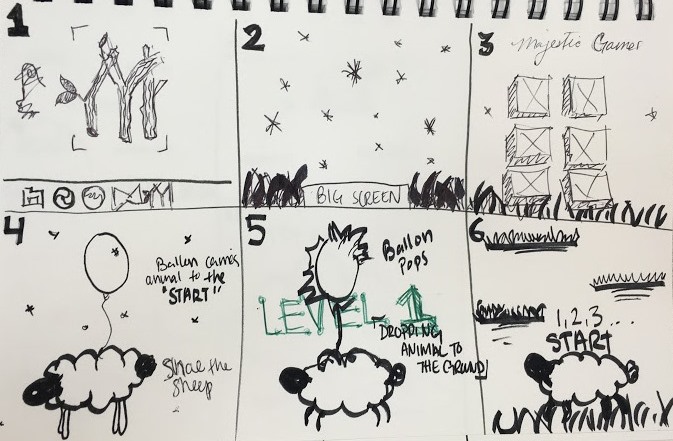 1
2
BIG SCREEN
3
Majestic Gamer
4
Ballon carries
animal to the
"START"
the
Sheep
5
Ballon
Pops
LEVEL 1
DROPPING
ANIMAL TO
THE GROUND!
6
1, 2, 3...
START